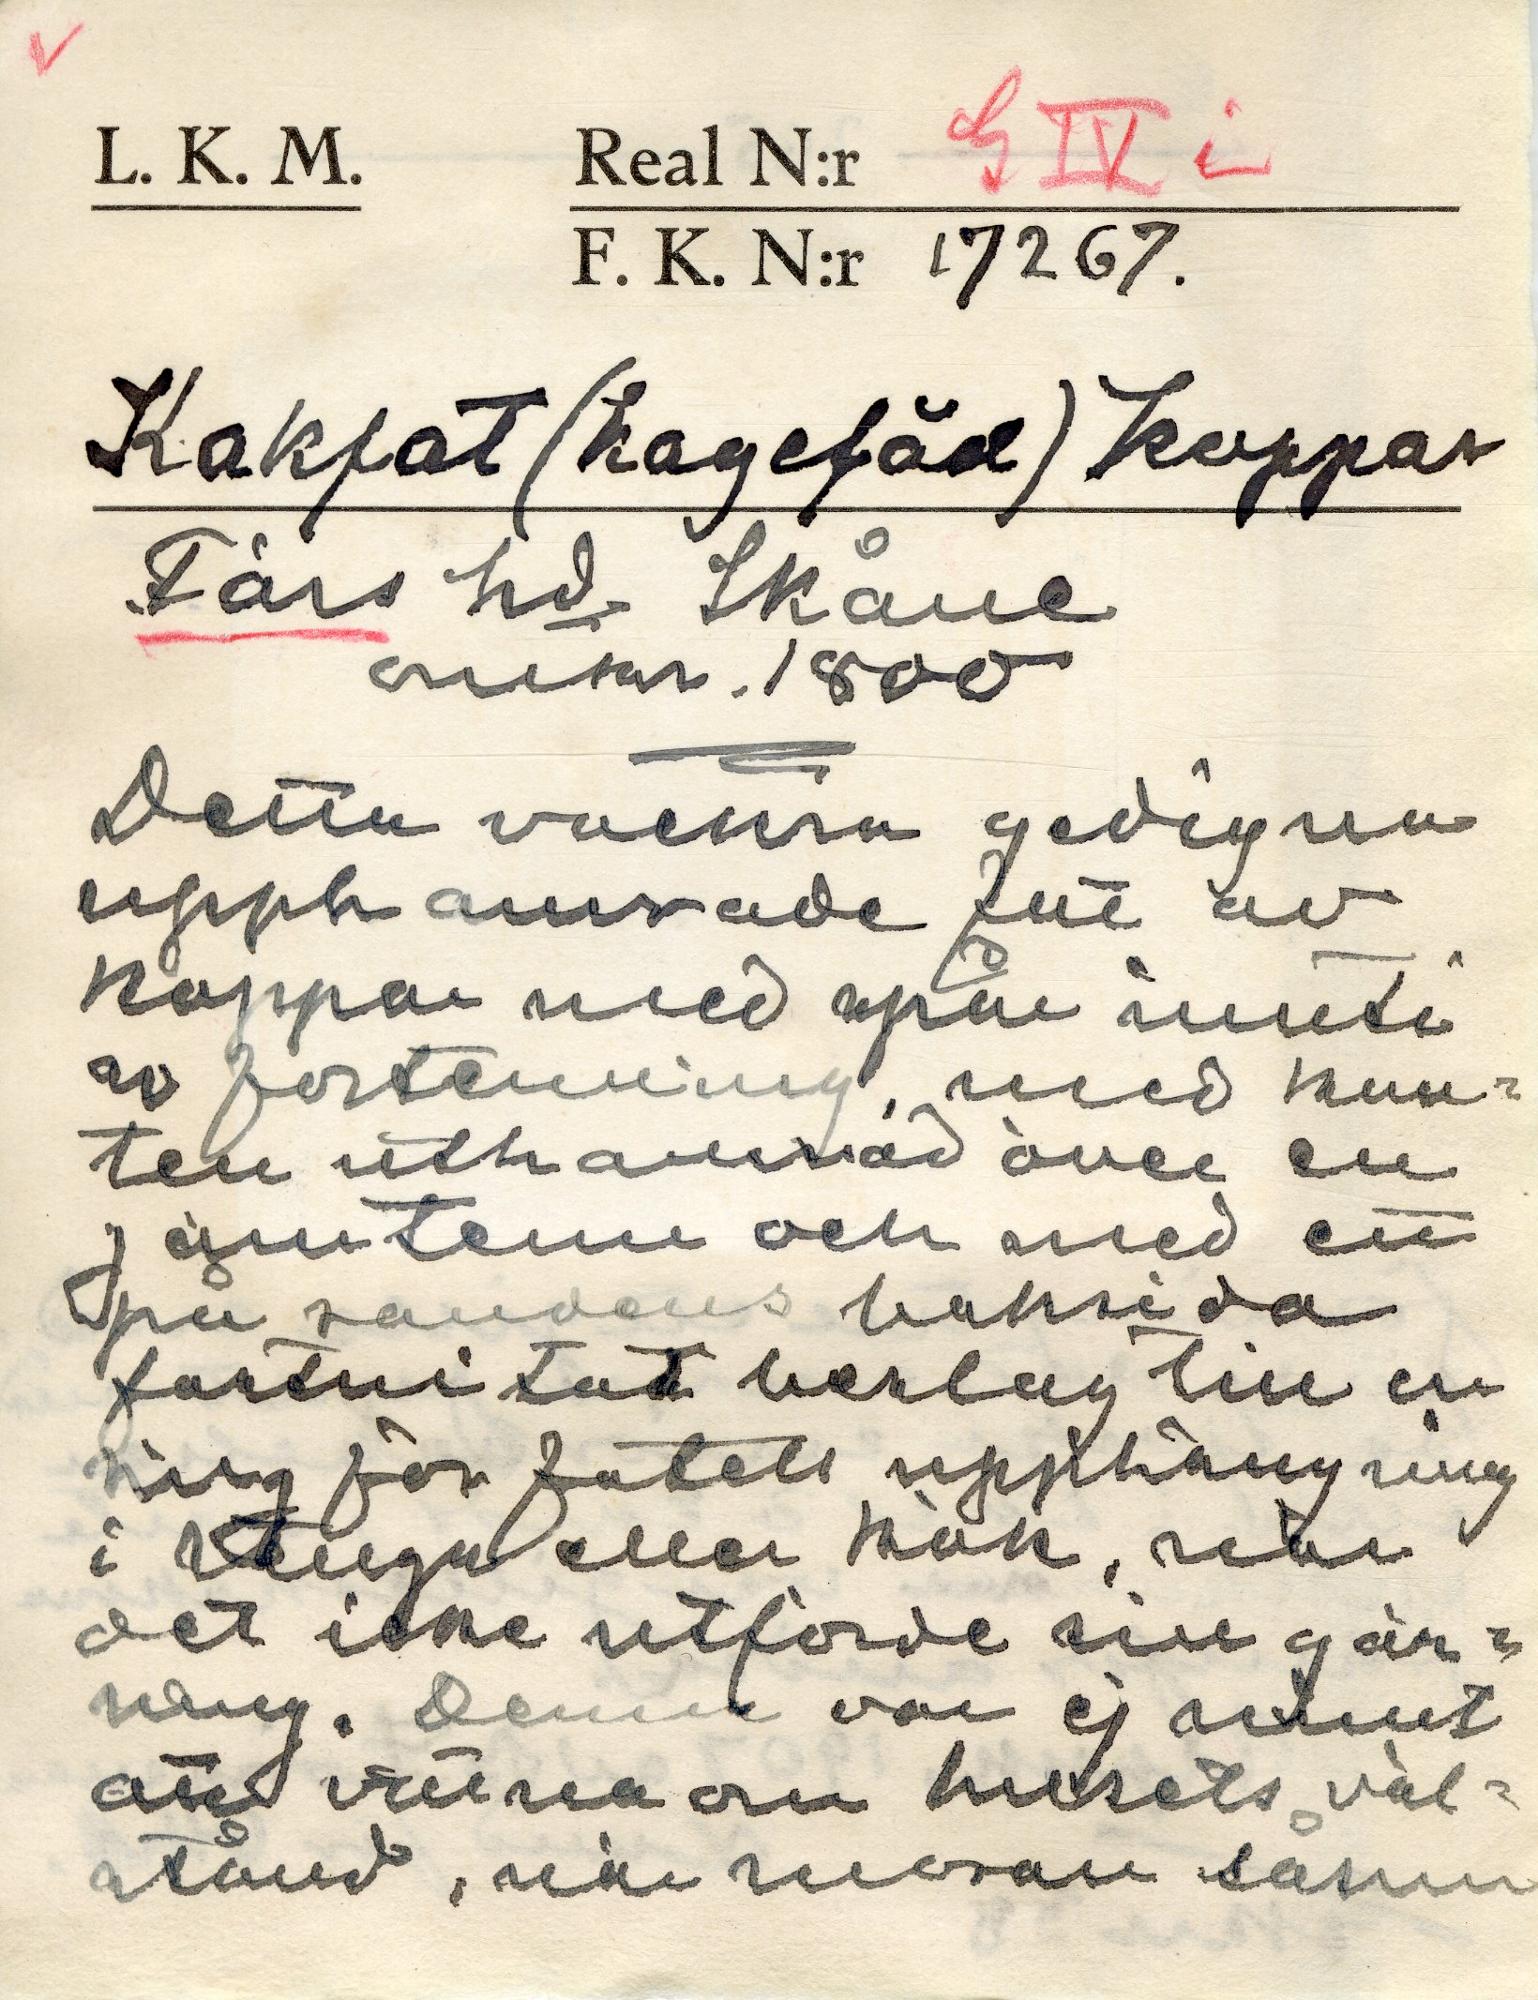 L. K. M.
Real N:r G IV i
F. K. N:r 17267.
Kakfat (kagefăd) koppar
Färs hd Skåne
omkr. 1800
Detta vackra gedigna
upphamrade fat av
koppar med spår inuti
av förtenning, med kan=
ten uthamrad över en
jämtenn och med ett
på randens baksida
fastnitat beslag till en
ring för fatets upphängning
i stuga eller kök, när
det icke utförde sin gär=
ning. Denna var ej minst
att vittna om husets väl=
stånd, när moran